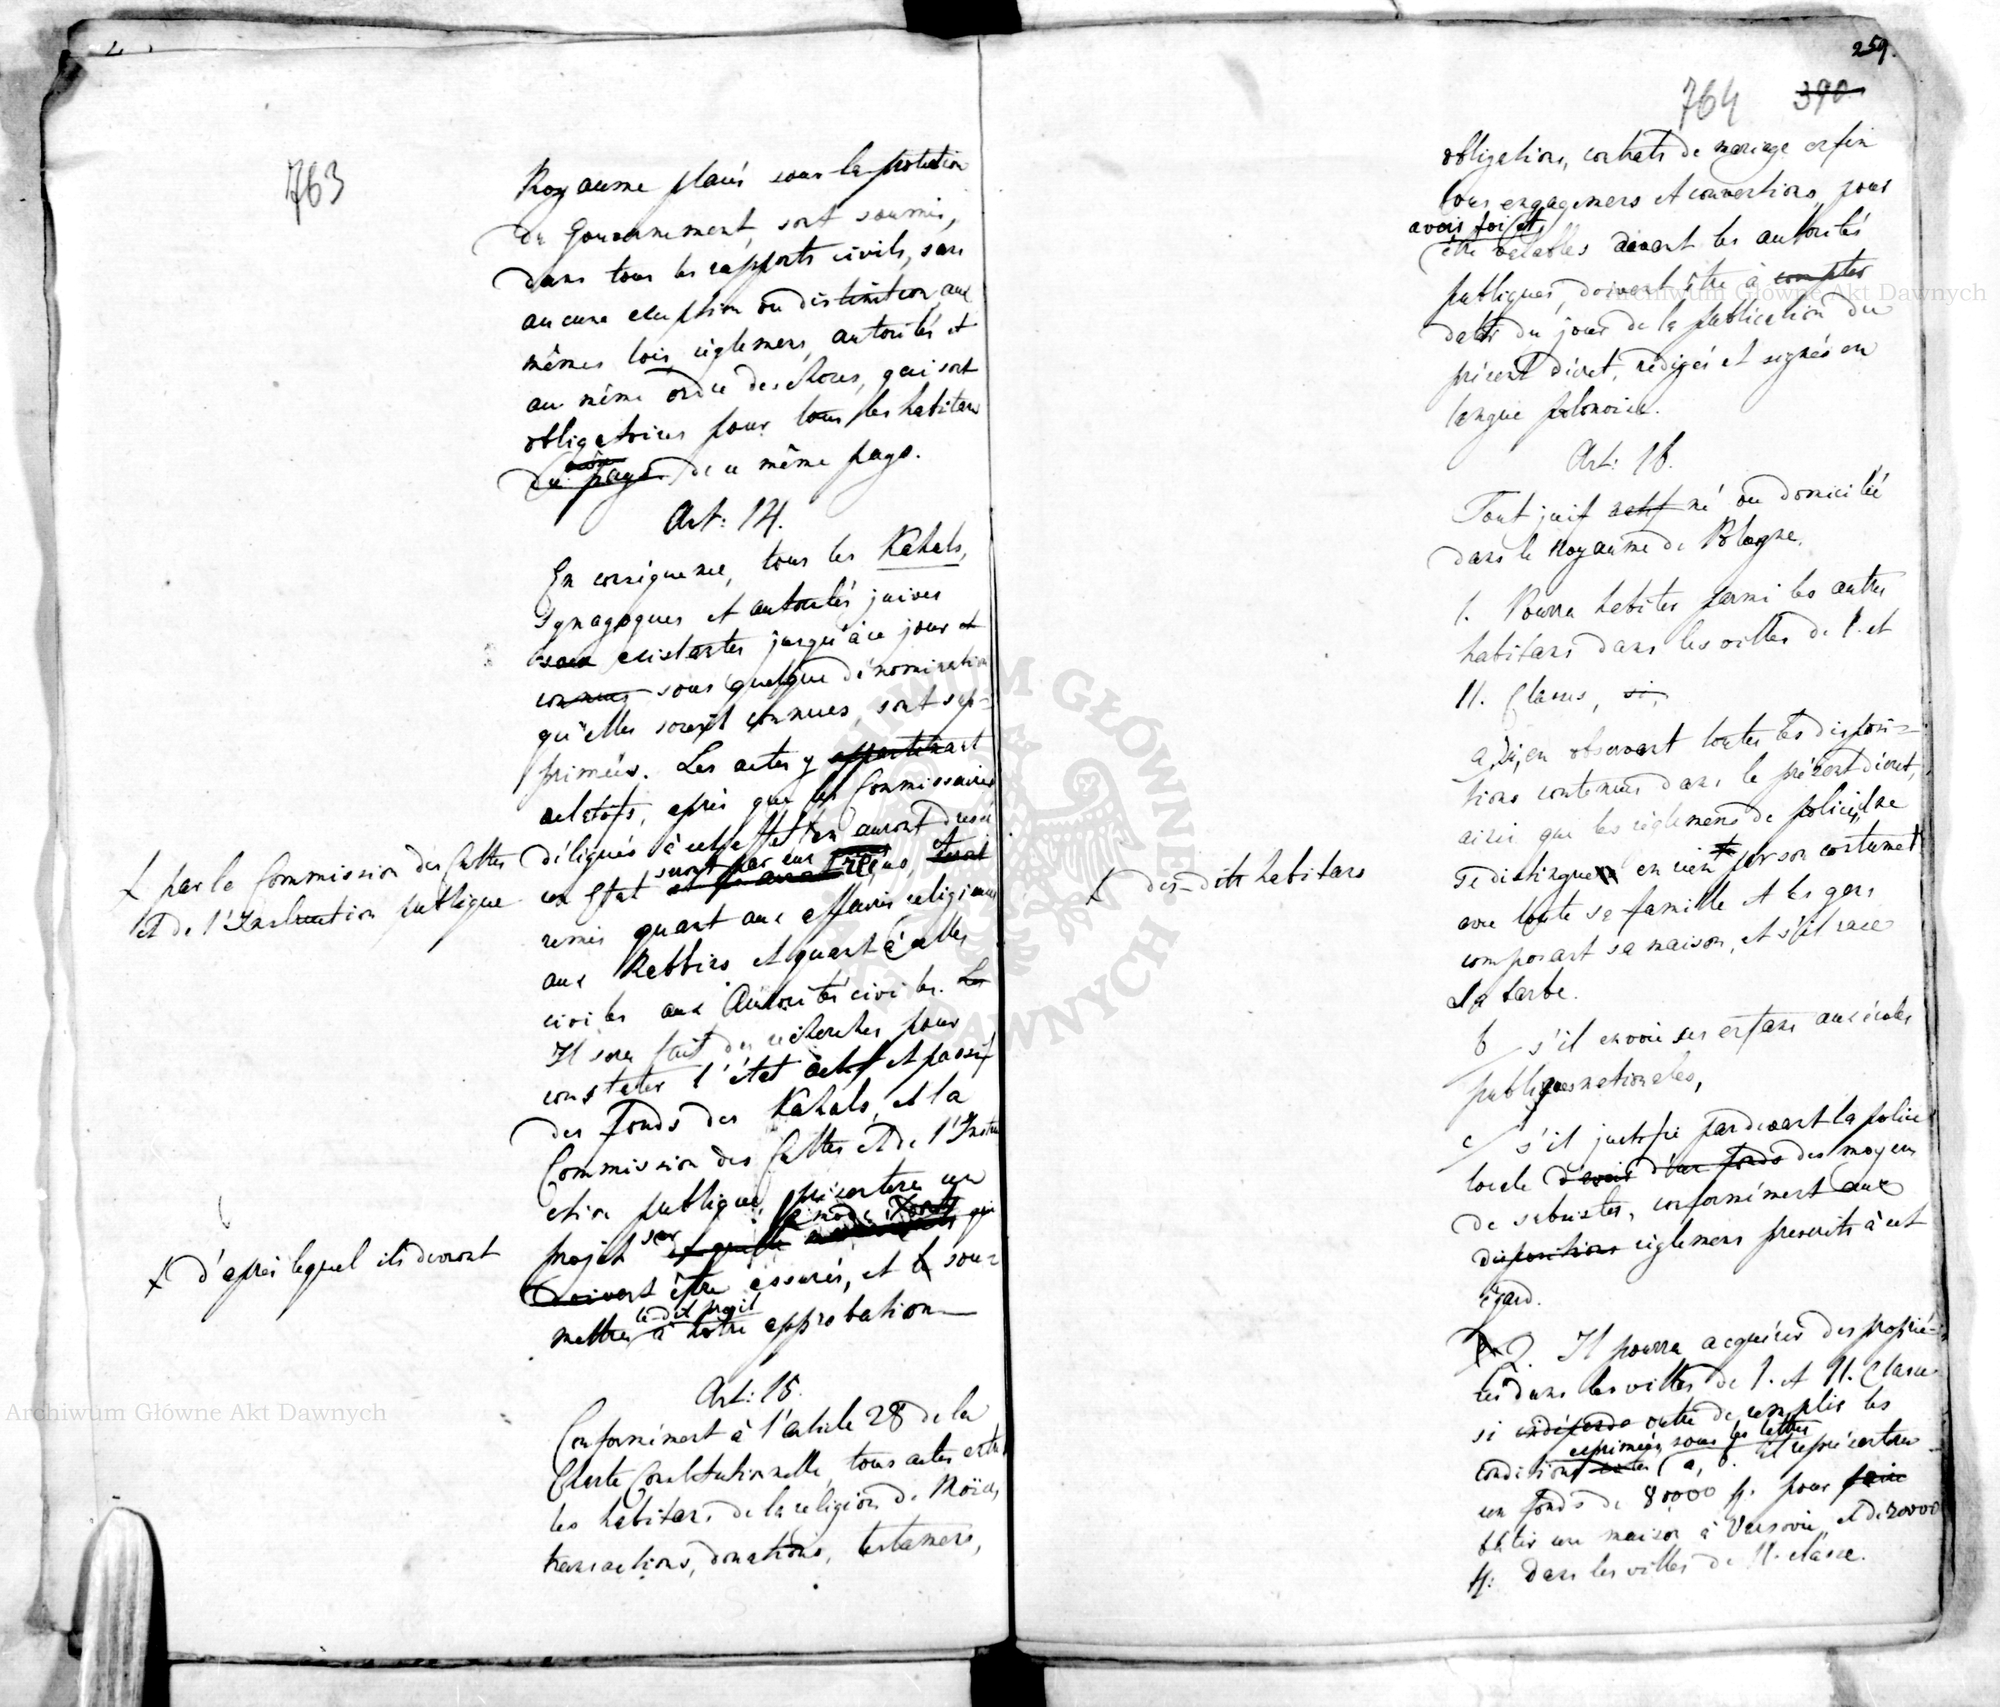 763
Royaume placés sous la protection
du Gouvernement, sont soumis,
dans tous les rapports civils, sans
aucune exception ou distinction, aux
mêmes lois, règlemens, autorités et
au même ordre des choses, qui sont
obligatoires pour tous les habitans
du pays de ce même pays.
Art: 14.
En conséquence, tous les Kahals,
Synagogues et autorités juives
existantes jusqu'à ce jour et
connues sous quelque dénomination
qu'elles soient connues, sont sup-
primées. Les actes y appartenant
relatifs, après que les Commissaires
délégués à cet effet en auront dressé
+ par la Commission des Cultes
et de l'Instruction publique
un Etat seront par eux
remis quant aux affaires religieuses
aux Rabbins et quant à celles
civiles aux Autorités civiles. Les
Il sera fait des recherches pour
constater l'état actif et passif
des fonds des Kahals, et la
Commission des Cultes et de l'Instru
ction publique, présentera un
projet sur le mode qui
+ d'après lequel ils devront
doivent être assurés, et le sou-
le-dit projet
mettre à notre approbation
Art: 15.
Conformément à l'article 28 de la
Charte Constitutionnelle, tous actes entre
les habitans de la religion de Moïse,
transactions, donations, testamens,
259.
764 390
obligations, contrats de mariage enfin
tous engagemens et conventions, pour
avoir foi et
être valables devant les autorités
publiques, doivent être à compter
dater du jour de la publication du
présent décret, rédigés et signés en
langue polonoise.
Art: 16.
Tout juif actif né ou domicilié
dans le Royaume de Pologne.
1. Pourra habiter parmi les autres
habitans dans les villes de I. et
II. Classes, si,
a, si, en observant toutes les disposi-
tions contenues dans le présent décret,
ainsi que les règlemens de police, il ne
se distingue en rien par son costume
+ des-dits habitans
avec toute sa famille et les gens
composant sa maison, et s'il rase
sa barbe.
b s'il envoie ses enfans aux écoles
publiques nationales,
c s'il justifie pardevant la police
locale d'avoir d'un fonds des moyens
de subsister, conformément aux
dispositions règlemens prescrits à cet
égard.
2. Il pourra acquérir des proprié-
tés dans les villes de I. et II. Classe
si outre de remplir les
exprimées sous les lettres
conditions a, b. il représentera
un fonds de 80000 fl. pour faire
bâtir une maison à Varsovie, et de 20000
fl. dans les villes de II. classe.
Archiwum Główne Akt Dawnych
Archiwum Główne Akt Dawnych
ARCHIWUM GŁÓWNE AKT DAWNYCH